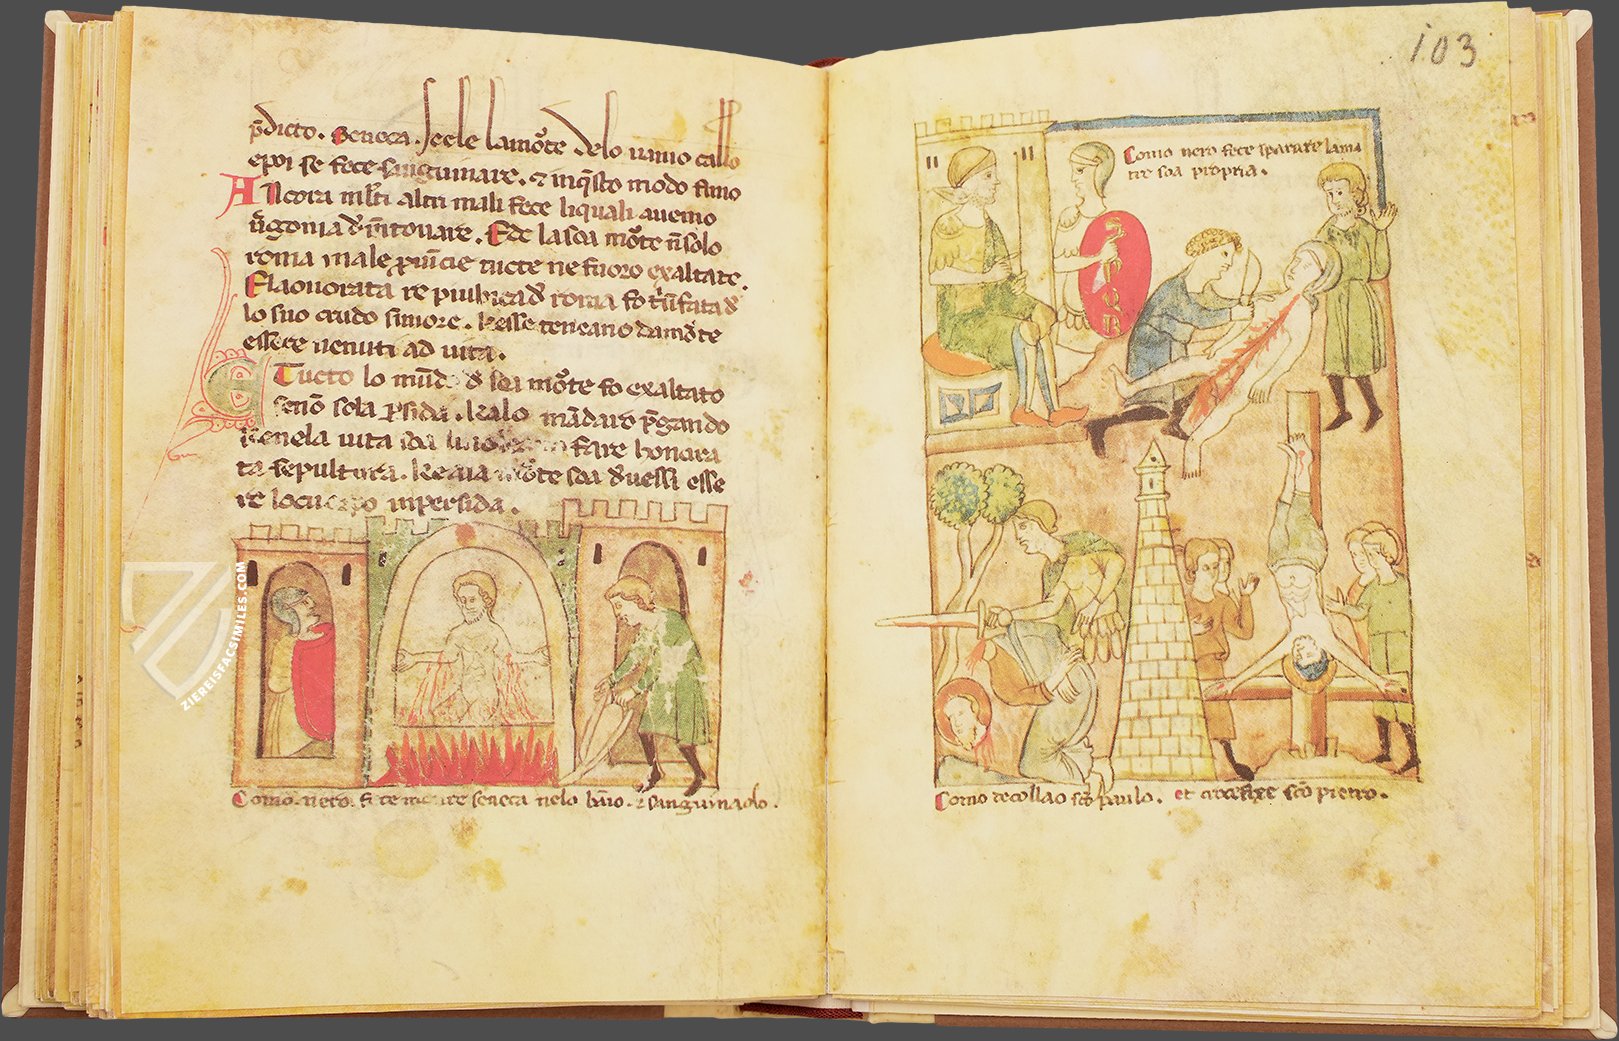 p̄dicto. Seneca. Seele lamōte delo uanio callo
epoi se fece sanguinare. & inq̄sto modo finio
Ancora ml̄ti altri mali fece liquali auemo
Ede lasoa mōte n̄ solo
roma male ꝓuīcie tucte ne fuoro exaltate.
Elaouorata re publica dͥ roma fo
lo suo crudo sinnore. Kesse teneano damōte
essere uenuti ad uita.
E Tucto lo mūdo dͥ soa mōte fo exaltato
senō sola ꝑsida. Kalo mādaro p̄gando
Kenela uita soa fare honora
ta sepultura. Keaia mōte soa dͥuessi esse
re locuerpo inpersida.
Como. nero. fece morire seneca nelo bāio. & sanguinaolo.
103
Como nero fece sparare lama
tre soa propria.
S P Q R
Como decollao sc̄o paulo. et crocifixe sc̄o pietro.
ZIEREISFACSIMILES.COM